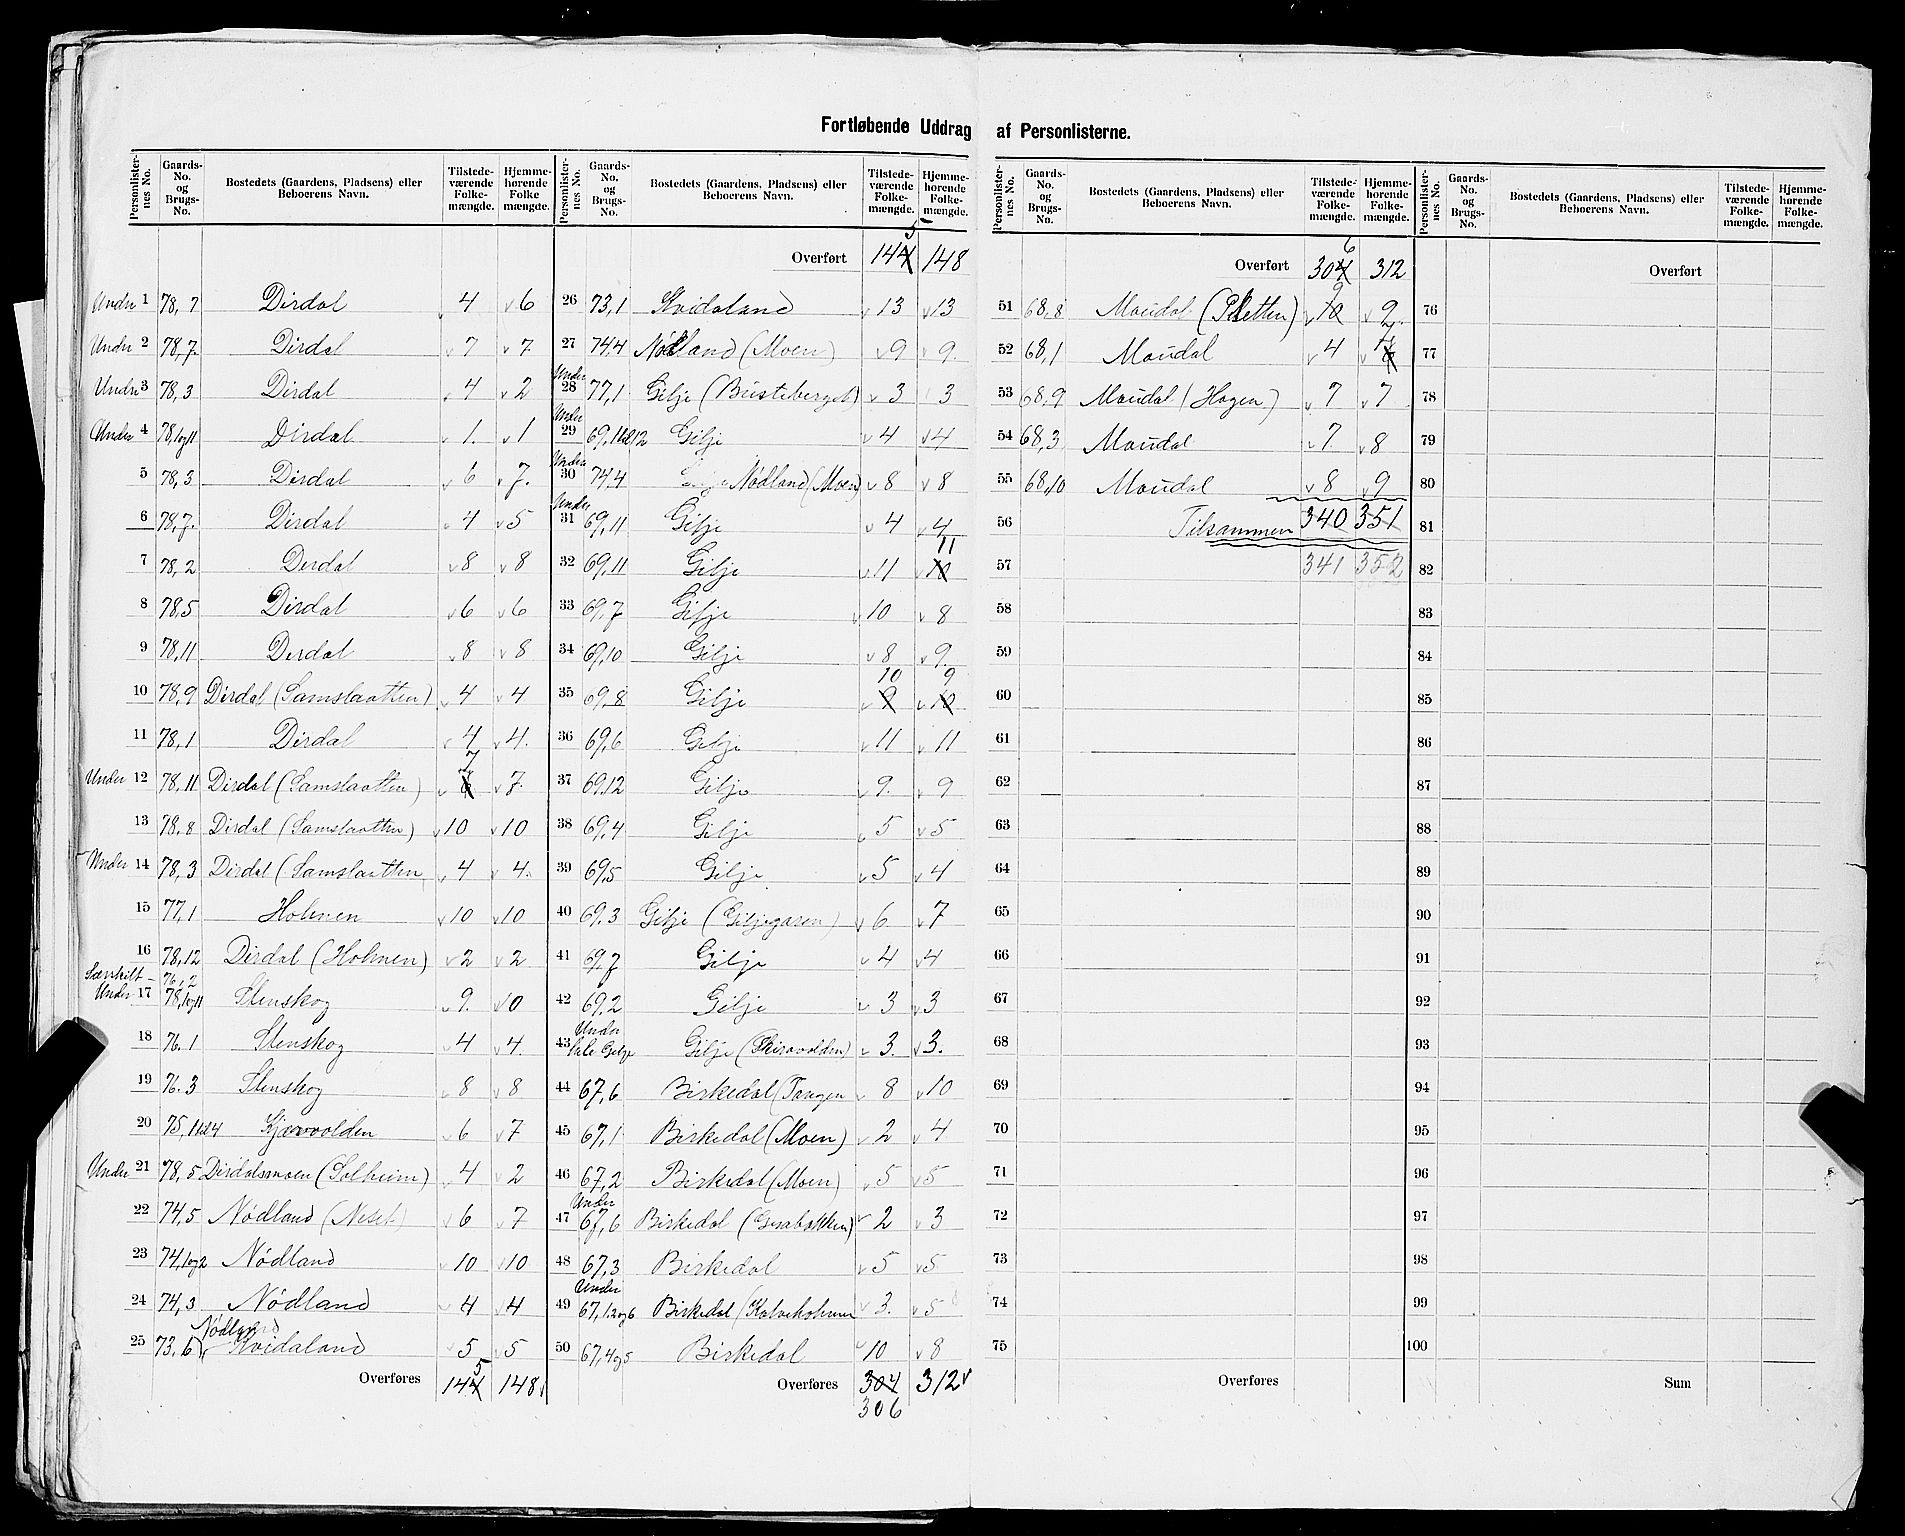 Fortløbende Uddrag af Personlisterne.
Personlister-nes No. | Gaards-No. og Brugs-No. | Bostedets (Gaardens, Pladsens) eller Beboerens Navn. | Tilstede-værende Folke-mængde. | Hjemme-hørende Folke-mængde.
Under 1 78,7 Dirdal 4 6
Under 2 78,7. Dirdal 7 7
Under 3 78,3 Dirdal 4 2
Under 4 78,1og11 Dirdal 1. 1
5 78,3 Dirdal 6 7.
6 78,7. Dirdal 4 5
7 78,2 Dirdal 8 8
8 78,5 Dirdal 6 6
9 78,11 Dirdal 8 8
10 78,9 Dirdal (Samslaatten) 4 4
11 78,1 Dirdal 4 4.
Under 12 78,11 Dirdal (Samslaatten) 6 7 7.
13 78,8 Dirdal (Samslaatten) 10 10
Under 14 78,3 Dirdal (Samslaatten 4 4.
15 77,1 Holmen 10 10
16 78,12 Dirdal (Holmen) 2 2
Særskilt – 76,2
Under 17 78,1og11 Stenskog 9. 10
18 76.1 Stenskog 4 4.
19 76.3 Stenskog 8 8
20 75,1til4 Kjærvolden 6 7
Under 21 78,5 Dirdalsmoen (Solheim) 4 2
22 74,5 Nødland (Neset) 6 7
23 74,1og2 Nødland 10 10
24 74,3 Nødland 4 4
Nødland
25 73.6 Kvidaland 5 5
Overføres 144 5 148
Personlister-nes No. | Gaards-No. og Brugs-No. | Bostedets (Gaardens, Pladsens) eller Beboerens Navn. | Tilstede-værende Folke-mængde. | Hjemme-hørende Folke-mængde.
Overført 144 5 148
26 73,1 Kvidaland 13 13
27 74,4 Nødland (Moen) 9 9.
Under 28 77,1 Gilje (Busteberget) 3 3
Under 29 69,1til12 Gilje 4 4
Under 30 74,4 Nødland (Moen) 8 8
Under 31 69,11 Gilje 4 4
32 69,11 Gilje 11 10 11
33 69,7 Gilje 10 8
34 69,10 Gilje 8 9.
35 69,8 Gilje 9 10 10 9
36 69,6 Gilje 11 11
37 69,12 Gilje 9. 9
38 69,4 Gilje 5 5
39 69,5 Gilje 5 4
40 69.3 Gilje (Giljegaren) 6 7
41 69,7 Gilje 4 4
42 69,2 Gilje 3 3
Under
43 hele Gilje Gilje 3. 3.
44 67,6 Birkedal (Tangen 8 10
45 67,1 Birkedal (Moen) 2 4
46 67,2 Birkedal (Moen) 5 5
Under
47 67,6 Birkedal (Gisabakken) 2 3
48 67,3 Birkedal 5 5
Under
49 67,1,2og6 Birkedal (Kalveholmen 3. 5
50 67,4og5 Birkedal 10 8
Overføres 304 312
306
Personlister-nes No. | Gaards-No. og Brugs-No. | Bostedets (Gaardens, Pladsens) eller Beboerens Navn. | Tilstede-værende Folke-mængde. | Hjemme-hørende Folke-mængde.
Overført 304 6 312
51 68,8 Maudal (Pletten) 10 9 9
52 68,1 Maudal 4 6 7
53 68,9 Maudal (Hagen) 7 7
54 68,3 Maudal 7. 8
55 68,10 Maudal 8 9
56 Tilsammen 340 351
57 341 352
58
59
60
61
62
63
64
65
66
67
68
69
70
71
72
73
74
75
Overføres
Personlister-nes No. | Gaards-No. og Brugs-No. | Bostedets (Gaardens, Pladsens) eller Beboerens Navn. | Tilstede-værende Folke-mængde. | Hjemme-hørende Folke-mængde.
Overført
76
77
78
79
80
81
82
83
84
85
86
87
88
89
90
91
92
93
94
95
96
97
98
99
100
Sum